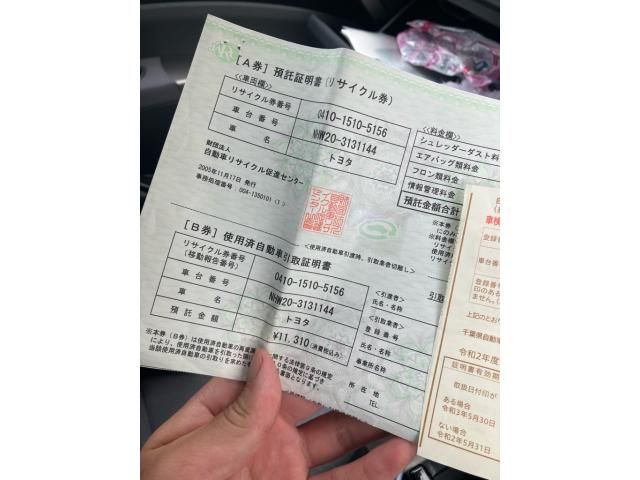 [A券] 預託証明書(リサイクル券)
<<車両欄>>
リサイクル券番号 0410-1510-5156
車台番号 NHW20-3131144
車名 トヨタ
財団法人
自動車リサイクル促進センター
2005年11月17日 発行
事務処理番号 004-1350101 (1)
<<料金欄>>
シュレッダーダスト料
エアバッグ類料金
フロン類料金
情報管理料金
預託金額合計
※本券
※料金欄
<使用済自動車引渡時、引取業者切離し>
[B券] 使用済自動車引取証明書
リサイクル券番号
(移動報告番号) 0410-1510-5156
車台番号 NHW20-3131144
車名 トヨタ
預託金額 ¥11,310(消費税込み)
<引渡者>
氏名・名称
<引取業者>
登録番号
氏名・名称
事業所名称
所在地
TEL
引取
※本券(B券)は使用済自動車の再資源
により、使用済自動車を引取った際
当該使用済自動車の引取りを求めた
関する法律第9条の規定
0条の規定に基づき
書面となります。
車検
登録
車台番
登録番号
印のある
ません。(
上記のとおり
千葉県自動車
令和2年度
証明書有効期
取扱日付印が
ある場合
令和3年5月30日
ない場合
令和2年5月31日